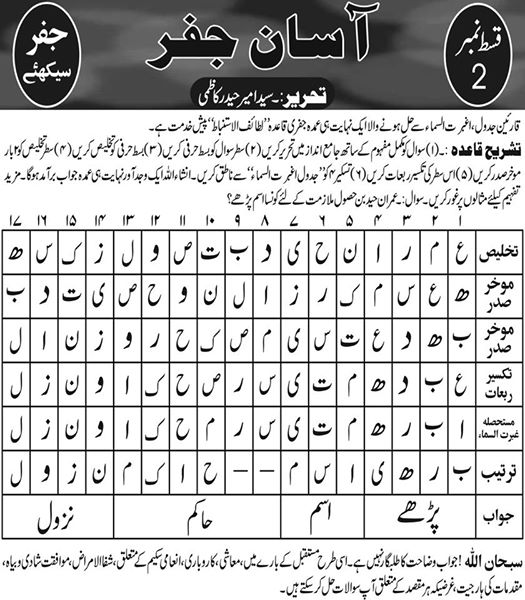 قسط نمبر 2
آسان جفر
جفر سیکھئے
تحریر:۔ سید امیر حیدر کاظمی
قارئین جدول، اغبرت السماء سے حل ہونے والا ایک نہایت ہی عمدہ جفری قاعدہ "لطائف الاستنباط" پیش خدمت ہے۔
تشریح قاعدہ ۔ (۱) سوال کو مکمل مفہوم کے ساتھ جامع انداز میں تحریر کریں (۲) سطر سوال کو بسط حرفی کریں (۳) بسط حرفی کو تخلیص کریں (۴) سطر تخلیص کو ۲ بار
مؤخر صدر کریں (۵) اس سطر کی تکسیر ربعات کریں (۶) تکسیر ۴ کو "جدول اغبرت السماء" سے ناطق کریں۔ انشاء اللہ ایک وجد آور نہایت ہی عمدہ جواب برآمد ہوگا۔ مزید
تفہیم کیلئے مثالوں پر غور کریں۔ سوال:۔ عمران حیدر بن حصول ملازمت کے لئے کونسا اسم پڑھے؟
۱ ۲ ۳ ۴ ۵ ۶ ۷ ۸ ۹ ۱۰ ۱۱ ۱۲ ۱۳ ۱۴ ۱۵ ۱۶ ۱۷
تخلیص ع م ر ا ن ح ی د ب ت ص و ل ز ک س ھ
موخر صدر ھ ع س م ک ر ز ا ل ن و ح ص ی ت د ب
موخر صدر ب ھ د ع ت س ی م ص ک ح ر و ز ن ا ل
تکسیر ربعات ع ب د ھ م ت ی س ر ص ح ک ا و ن ز ل
مستحصلہ غبرت السماء ا ب ر ھ م ت ی س ر م ح ک ا و ن ز ل
ترتیب ب ر ھ ی ا س م - - ح ا ک م ن ز و ل
جواب پڑھے اسم حاکم نزول
سبحان اللہ! جواب وضاحت کا طلبگار نہیں ہے۔ اسی طرح مستقبل کے بارے میں، معاشی، کاروباری، انعامی سکیم کے متعلق، شفا الامراض، موافقت شادی و بیاہ،
مقدمات کی ہار جیت، غرضیکہ ہر مقصد کے متعلق آپ سوالات حل کر سکتے ہیں۔